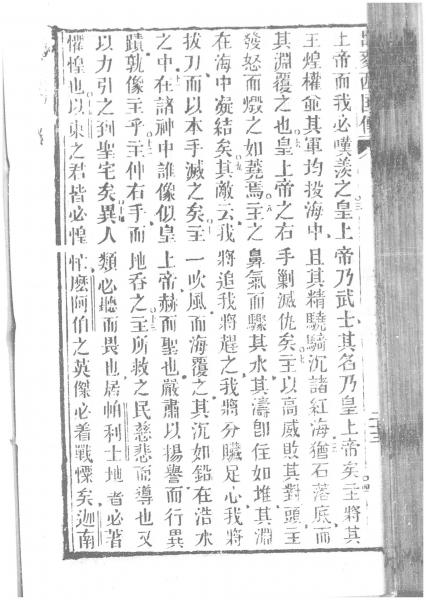 上帝而我必嘆羨之皇上帝乃武士其名乃皇上帝矣主將其
王煌權並其軍均投海中且其精驍騎沉諸紅海猶石落底而
其淵覆之也皇上帝之右手剿滅仇矣主以高威敗其對頭主
發怒而燬之如蒭焉主之鼻氣而驟其水其濤卽住如堆其淵
在海中凝結矣其敵云我將追我將趕之我將分贓足心我將
拔刀而以本手滅之矣主一吹風而海覆之其沉如鉛在浩水
之中在諸神中誰像似皇上帝赫而聖也嚴肅以揚譽而行異
蹟孰像主乎主仲右手而地吞之主所救之民慈悲而導也又
以力引之到聖宅矣異人類必聽而畏也居帕利士地者必著
懼惶也以東之君皆必惶忙麽阿伯之英傑必着戰慄矣迦南
二十三